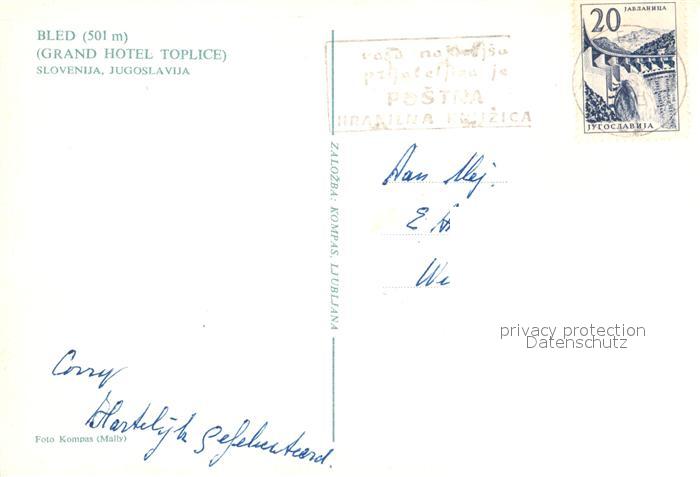 BLED (501 m)
(GRAND HOTEL TOPLICE)
SLOVENIJA, JUGOSLAVIJA
vaša najboljša
prijateljica je
POŠTNA
HRANILNA KNJIŽICA
20
ЈАБЛАНИЦА
ЈУГОСЛАВИЈА
ZALOŽBA: KOMPAS, LJUBLJANA
Aan Mej.
We
privacy protection
Datenschutz
Corry
Hartelijk gefeliciteerd.
Foto Kompas (Mally)